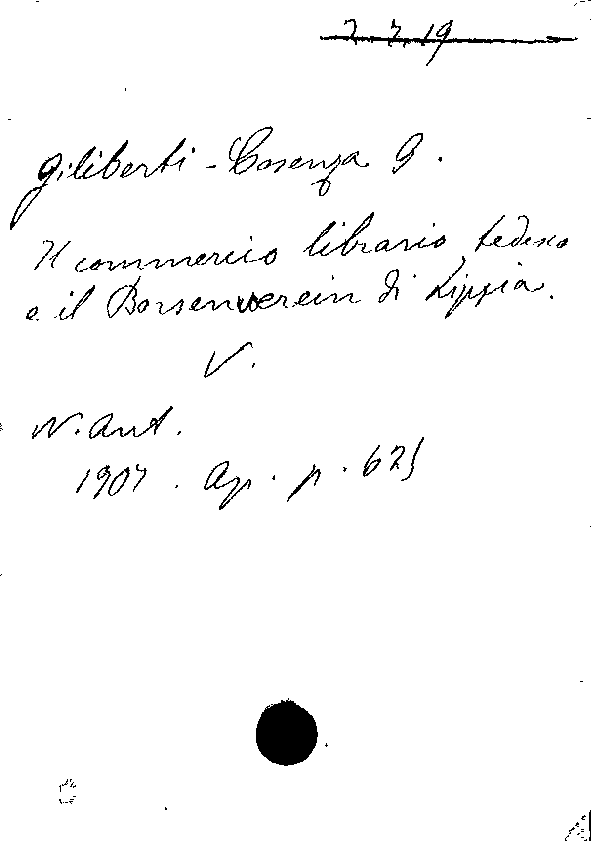 7.7.19
Giliberti-Cosenza G.
Il commercio librario tedesco
e il Borsenverein di Lipsia.
V.
N. Ant.
1907. Ap. p. 625